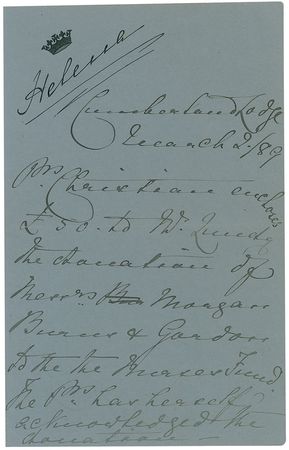 Helena
Cumberland Lodge
March 2./89
Prss. Christian encloses
£50. to Mr.
the donation of
Messrs Morgan
Burns & Gordon
to the the Nurses Fund
The Prss. has herself
acknowledged the
donation —